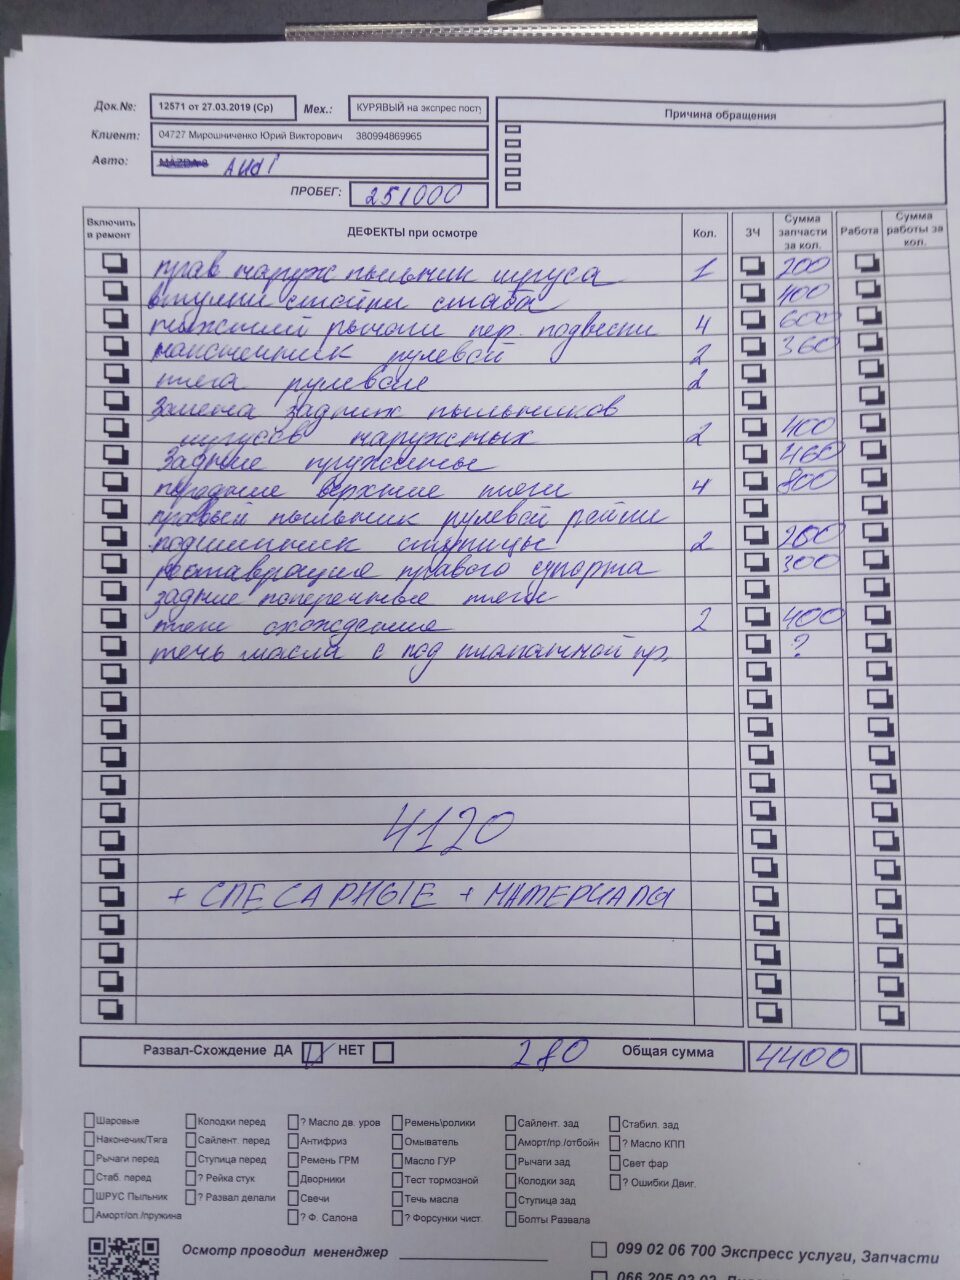 Док.№: 12571 от 27.03.2019 (Ср) Мех.: КУРЯВЫЙ на экспрес пост Причина обращения
Клиент: 04727 Мирошниченко Юрий Викторович 380994869965
Авто: MAZDA 6 AUDI
ПРОБЕГ: 251000
Включить в ремонт ДЕФЕКТЫ при осмотре Кол. ЗЧ Сумма запчасти за кол. Работа Сумма работы за кол.
прав наруж пыльник шруса 1 200
втулки стойки стаба 400
нижний рычаги пер. подвески 4 600
наконечник рулевой 2 360
тяга рулевое 2
Замена задних пыльников
шрусов наружных 2 400
Задние пружины 460
передние верхние тяги 4 800
правый пыльник рулевой рейки
подшипник ступицы 2 200
реставрация правого супорта 300
задние поперечные тяги
тяги схождение 2 400
течь масла с под клапанной кр. ?
4120
+ СЛЕСАРНЫЕ + МАТЕРИАЛЫ
Развал-Схождение ДА НЕТ 280 Общая сумма 4400
Шаровые Колодки перед ? Масло дв. уров Ремень\ролики Сайлент. зад Стабил. зад
Наконечик/Тяга Сайлент. перед Антифриз Омыватель Аморт/пр./отбойн ? Масло КПП
Рычаги перед Ступица перед Ремень ГРМ Масло ГУР Рычаги зад Свет фар
Стаб. перед ? Рейка стук Дворники Тест тормозной Колодки зад ? Ошибки Двиг.
ШРУС Пыльник ? Развал делали Свечи Течь масла Ступица зад
Аморт/оп./пружина ? Ф. Салона ? Форсунки чист. Болты Развала
Осмотр проводил мененджер 099 02 06 700 Экспресс услуги, Запчасти